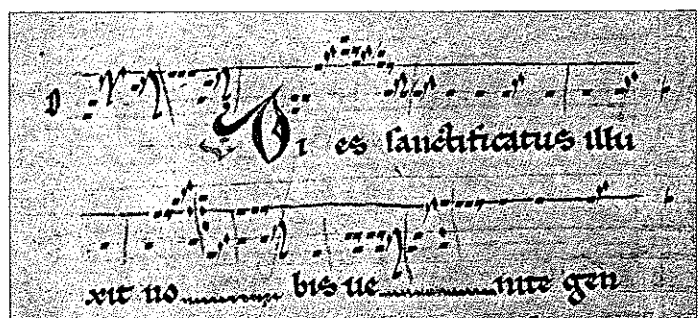 Di es sanctificatus illu
xit no bis ue nite gen